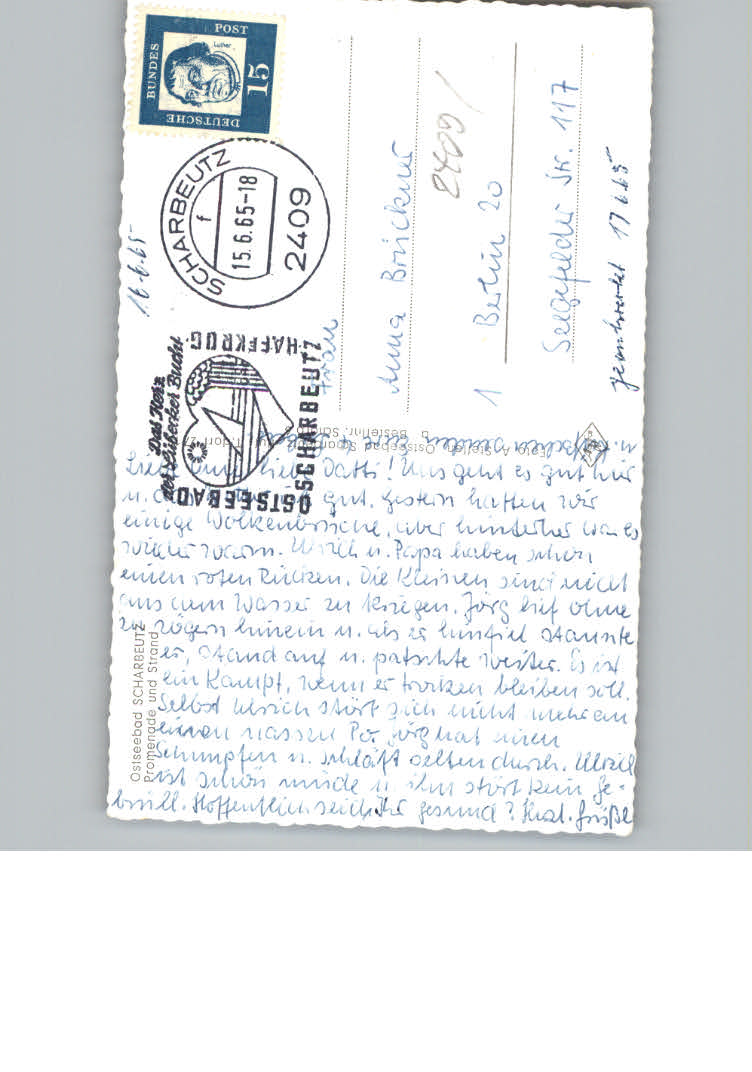 DEUTSCHE
BUNDES
POST
Luther
15
SCHARBEUTZ
f
15.6.65-18
2409
Das Herz
der Lübecker Bucht
OSTSEEBAD
SCHARBEUTZ
HAFFKRUG
16.6.65
Frau
Anna Brückner
2409/
1 Berlin 20
Seegefelder Str. 117
beantwortet 17.6.65
Liebe liebe Datti! Uns geht es gut hier
u. gut. Gestern hatten wir
einige Wolkenbrüche, aber hinterher war es
wieder warm. Ulrich u. Papa haben schon
einen roten Rücken. Die Kleinen sind nicht
aus dem Wasser zu kriegen. Jörg lief ohne
zu zögern hinein u. als er hinfiel staunte
er, stand auf u. patschte weiter. Es ist
ein Kampf, wenn er trocken bleiben soll.
Selbst Ulrich stört sich nicht mehr an
einen nassen Po. Jörg hat einen
Schnupfen u. schläft selten durch. Ulrich
ist schön müde u. ihn stört kein Ge-
brüll. Hoffentlich seid Ihr gesund? Herzl. Grüße
Ostseebad SCHARBEUTZ
Promenade und Strand